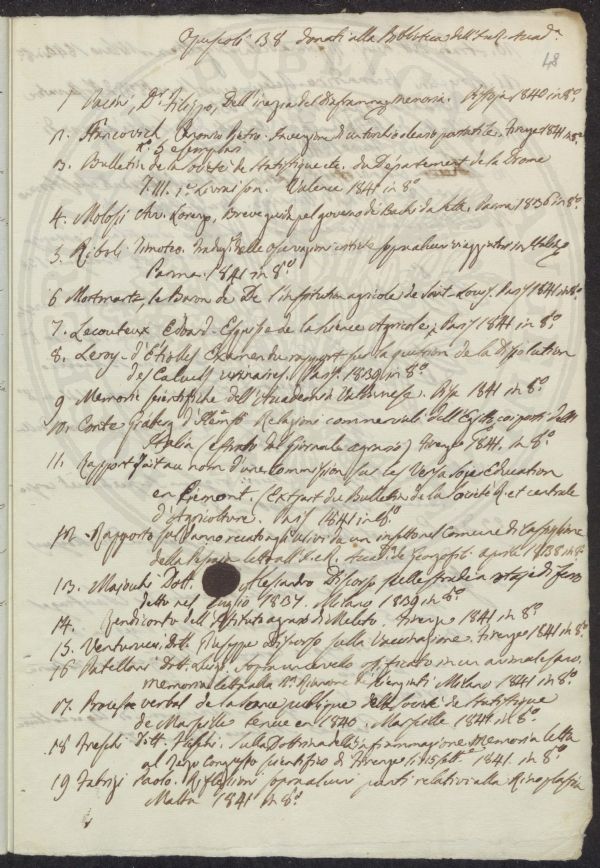 Opuscoli 138 donati alla Biblioteca dell'
48
1 Dr. Filippo, Dell' del diaframma, memoria. 1840 in 8.o
2. Francovich Pietro. Invenzione di un torchio oleario portatile. Firenze 1841 in 8.o
N.o 5 esemplari
3. Bulletin de la Société de Statistique etc. du Département de la Drome
T. III. 1.e Livraison. Valence 1841 in 8.o
4. Molossi Avv. Lorenzo, Breve guida pel governo de' Bachi da seta. Parma 1836 in 8.o
5. Riboli Timoteo. sopra alcuni viaggiatori in Italia
Parma 1841 in 8.o
6 Mortemart, le Baron de De l'institution agricole de Saint Louis. Paris 1841 in 8.o
7. Lecouteux Edouard - Esquisse de la Science Agricole, Paris 1841 in 8.o
8. Leroy-d'Étiolles Examen du rapport sur la question de la Dissolution
des Calculs urinaires. Paris 1839 in 8.o
9 Memorie scientifiche dell'Accademia Valdarnese. Pisa 1841 in 8.o
10. Conte Gråberg d'Hemsö Relazioni commerciali dell'Egitto coi porti dell'
Italia (estratto dal Giornale agrario) Firenze 1841. in 8.o
11. Rapport fait au nom d'une commission sur les Vers à Soie Education
en Piemont. (Extrait du Bulletin de la Société R. et centrale
d'Agricolture. Paris 1841 in 8.o
12. Rapporto sul danno recato agli ulivi da un insetto nel Comune di Castiglione
della Pescaia letto all'I. e R. Accad.a de' Georgofili aprile 1838 in 8.o
13. Dott. Alessandro Discorso sulle strade a rotaje di ferro
detto nel Luglio 1837. Milano 1839 in 8.o
14. Rendiconto dell'Istituto agrario di Meleto. Firenze 1841 in 8.o
15. Venturucci Dott. Giuseppe discorso sulla Vaccinazione. Firenze 1841 in 8.o
16 Patellani Dott. Luigi sopra un cervello ossificato in un animale sano.
memoria letta alla Riunione Milano 1841 in 8.o
17. Proces verbal de la seance publique de la Société de Statistique
de Marseille tenue en 1840. Marseille 1841 in 8.o
18 Freschi Dott. Sulla Dottrina della infiammazione memoria letta
al terzo congresso scientifico di Firenze li 15 sett.e 1841. in 8.o
19 Fabrizi Paolo. Riflessioni sopra alcuni punti relativi alla Rinoplastia
Malta 1841 in 8.o